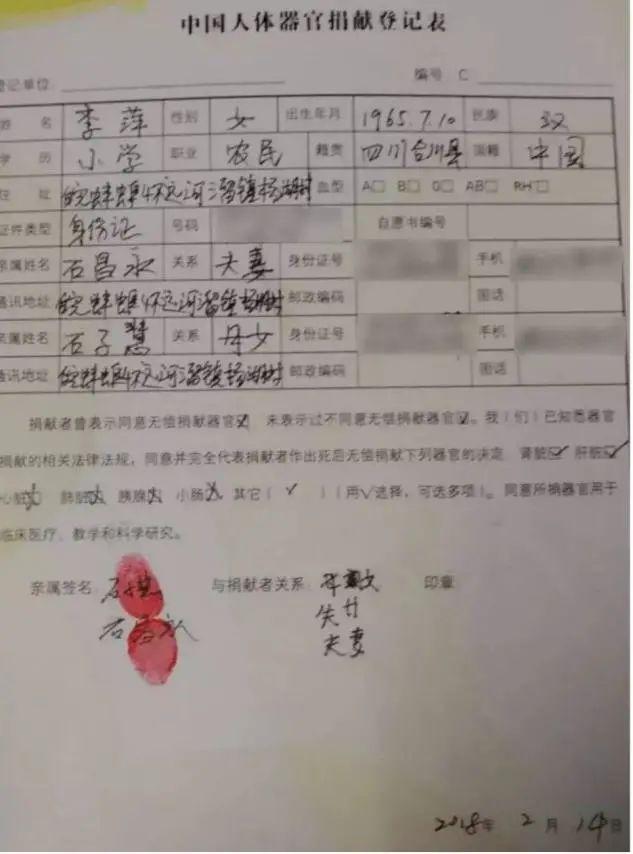 中国人体器官捐献登记表
登记单位: 编号 C
姓 名 李萍 性别 女 出生年月 1965.7.10 民族 汉
学 历 小学 职业 农民 籍贯 四川合川县 国籍 中国
住 址 皖蚌埠怀远河溜镇杨湖村 血型 A□ B□ O□ AB□ RH□
证件类型 身份证 号码 自愿书编号
亲属姓名 石昌永 关系 夫妻 身份证号 手机
通讯地址 皖蚌埠怀远河溜镇杨湖村 邮政编码 固话
亲属姓名 石子慧 关系 母女 身份证号 手机
通讯地址 皖蚌埠怀远河溜镇杨湖村 邮政编码 固话
捐献者曾表示同意无偿捐献器官☑, 未表示过不同意无偿捐献器官☑。我(们)已知悉器官
捐献的相关法律法规,同意并完全代表捐献者作出死后无偿捐献下列器官的决定, 肾脏☑ 肝脏☑
心脏 肺脏 胰腺 小肠 其它( ✓ )(用√选择,可选多项)。同意所捐器官用于
临床医疗、教学和科学研究。
亲属签名: 与捐献者关系: 印章:
石昌永 夫妻
2018年 2 月 14日